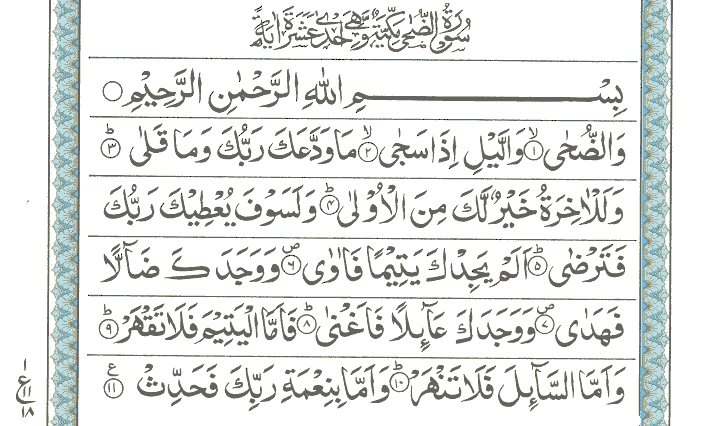 سُوْرَةُ الضُّحٰى مَكِّيَّةٌ وَّهِىَ اِحْدٰى عَشَرَةَ اٰيَةً
بِسْمِ اللّٰهِ الرَّحْمٰنِ الرَّحِيْمِ ۝
وَالضُّحٰى ۙ‏﴿۱﴾ وَالَّيْلِ اِذَا سَجٰى ۙ‏﴿۲﴾ مَا وَدَّعَكَ رَبُّكَ وَمَا قَلٰى ؕ‏﴿۳﴾
وَلَلْاٰخِرَةُ خَيْرٌ لَّكَ مِنَ الْاُوْلٰى ؕ‏﴿۴﴾ وَلَسَوْفَ يُعْطِيْكَ رَبُّكَ
فَتَرْضٰى ؕ‏﴿۵﴾ اَلَمْ يَجِدْكَ يَتِيْمًا فَاٰوٰى ۖ‏﴿۶﴾ وَوَجَدَكَ ضَآلًّا
فَهَدٰى ۖ‏﴿۷﴾ وَوَجَدَكَ عَآٮِٕلًا فَاَغْنٰى ؕ‏﴿۸﴾ فَاَمَّا الْيَتِيْمَ فَلَا تَقْهَرْ ؕ‏﴿۹﴾
وَاَمَّا السَّآٮِٕلَ فَلَا تَنْهَرْ ؕ‏﴿۱۰﴾ وَاَمَّا بِنِعْمَةِ رَبِّكَ فَحَدِّثْ ‏﴿۱۱﴾ ع
۱
ع
۱۱
۱۸